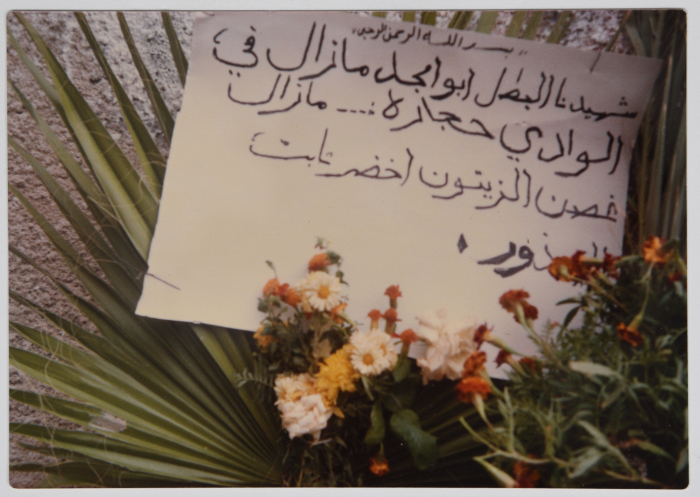 بسم الله الرحمن الرحيم
شهيدنا البطل ابو امجد مازال في
الوادي حجاره .... مازال
غصن الزيتون اخضر ثابت
الجذور .